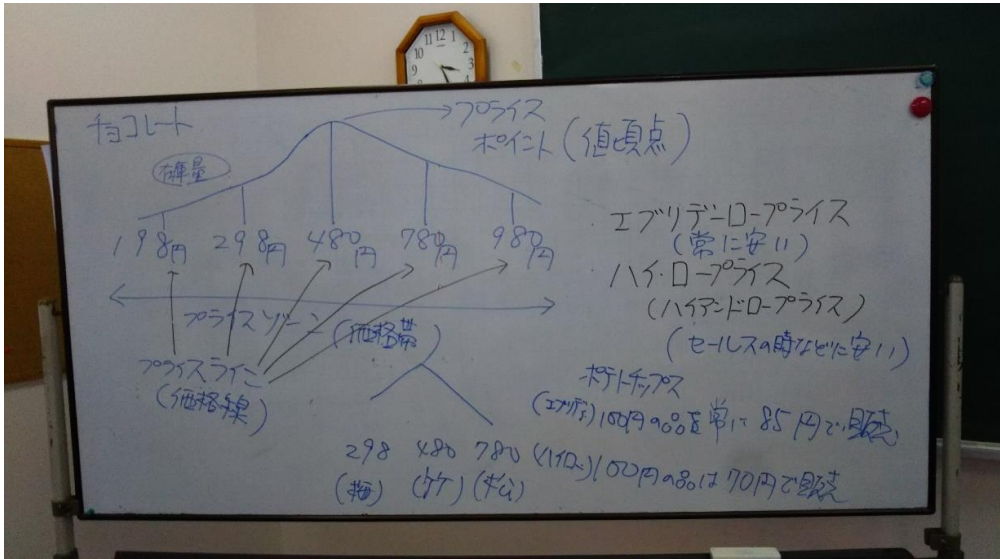 チョコレート
プライス
ポイント(値頃点)
在庫量
198円 298円 480円 780円 980円
プライスゾーン(価格帯)
プライスライン
(価格線)
298 480 780
(梅) (竹) (松)
エブリデーロープライス
(常に安い)
ハイ・ロープライス
(ハイアンドロープライス)
(セールスの時などに安い)
ポテトチップス
(エブリデー)100円の品を常に85円で販売
(ハイロー)100円の品は70円で販売
11 12 1
10 2
9 3
8 4